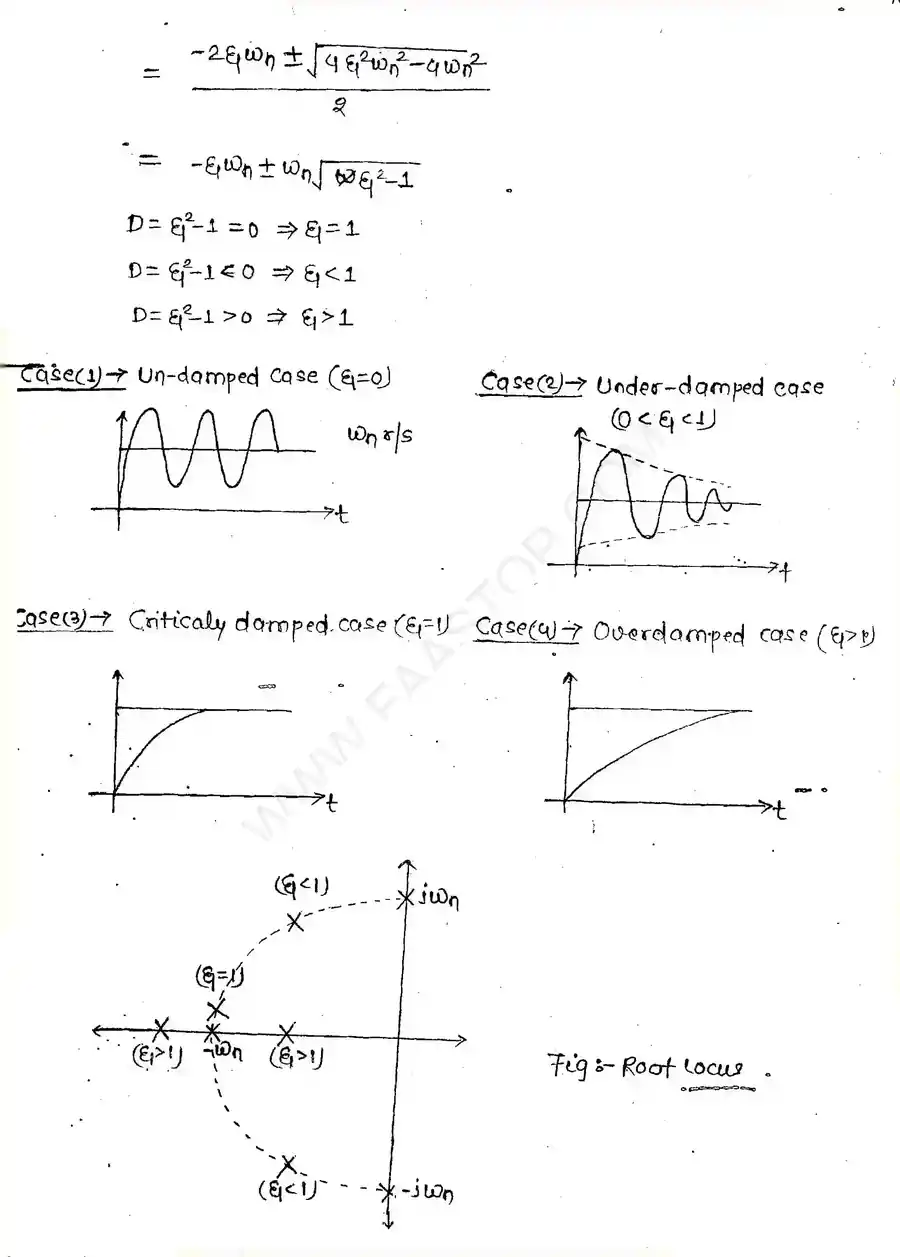 = (-2ξωn ± √(4ξ²ωn² - 4ωn²)) / 2
= -ξωn ± ωn√(ξ²-1)
D = ξ²-1 = 0 ⇒ ξ = 1
D = ξ²-1 < 0 ⇒ ξ < 1
D = ξ²-1 > 0 ⇒ ξ > 1
Case(1)→ Un-damped case (ξ=0)
ωn r/s
t
Case(2)→ Under-damped case
(0 < ξ < 1)
t
Case(3)→ Criticaly damped case (ξ=1)
t
Case(4)→ Overdamped case (ξ>1)
t
(ξ<1)
jωn
(ξ=1)
(ξ>1) -ωn (ξ>1)
Fig :- Root Locus .
(ξ<1) -jωn
WWW.FAASTOP.COM